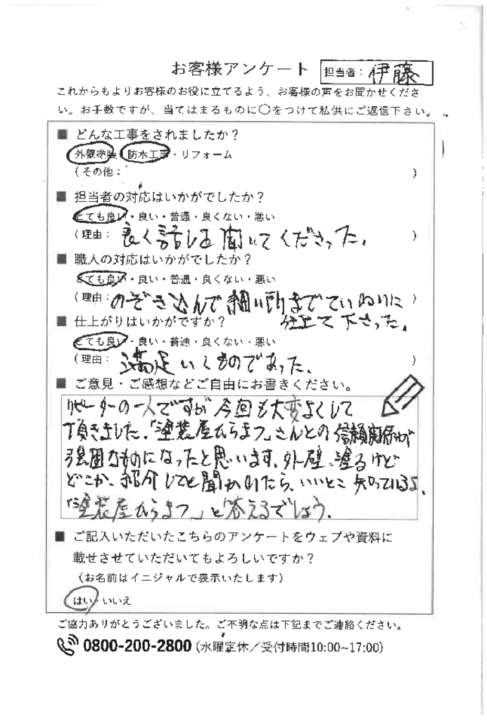 お客様アンケート 担当者：伊藤
これからもよりお客様のお役に立てるよう、お客様の声をお聞かせくださ
い。お手数ですが、当てはまるものに〇をつけて私供にご返信下さい。
■ どんな工事をされましたか？
外壁塗装・防水工事・リフォーム
（その他： ）
■ 担当者の対応はいかがでしたか？
とても良い・良い・普通・良くない・悪い
（理由： 良く話しを聞いてくださった。 ）
■ 職人の対応はいかがでしたか？
とても良い・良い・普通・良くない・悪い
（理由： のぞき込んで細い所までていねいに ）
仕上て下さった。
■ 仕上がりはいかがですか？
とても良い・良い・普通・良くない・悪い
（理由： 満足いくものであった。 ）
■ ご意見・ご感想などご自由にお書きください。
リピーターの一人ですが今回も大変よくして
頂きました。「塗装屋むらまつ」さんとの信頼関係が
強固なものになったと思います。外壁、塗るけど
どこか、紹介してと聞かれたら、いいとこ知っているよ、
「塗装屋むらまつ」と答えるでしょう。
■ ご記入いただいたこちらのアンケートをウェブや資料に
載せさせていただいてもよろしいですか？
（お名前はイニシャルで表示いたします）
はい・いいえ
ご協力ありがとうございました。ご不明な点は下記までご連絡ください。
0800-200-2800 (水曜定休／受付時間10:00~17:00)